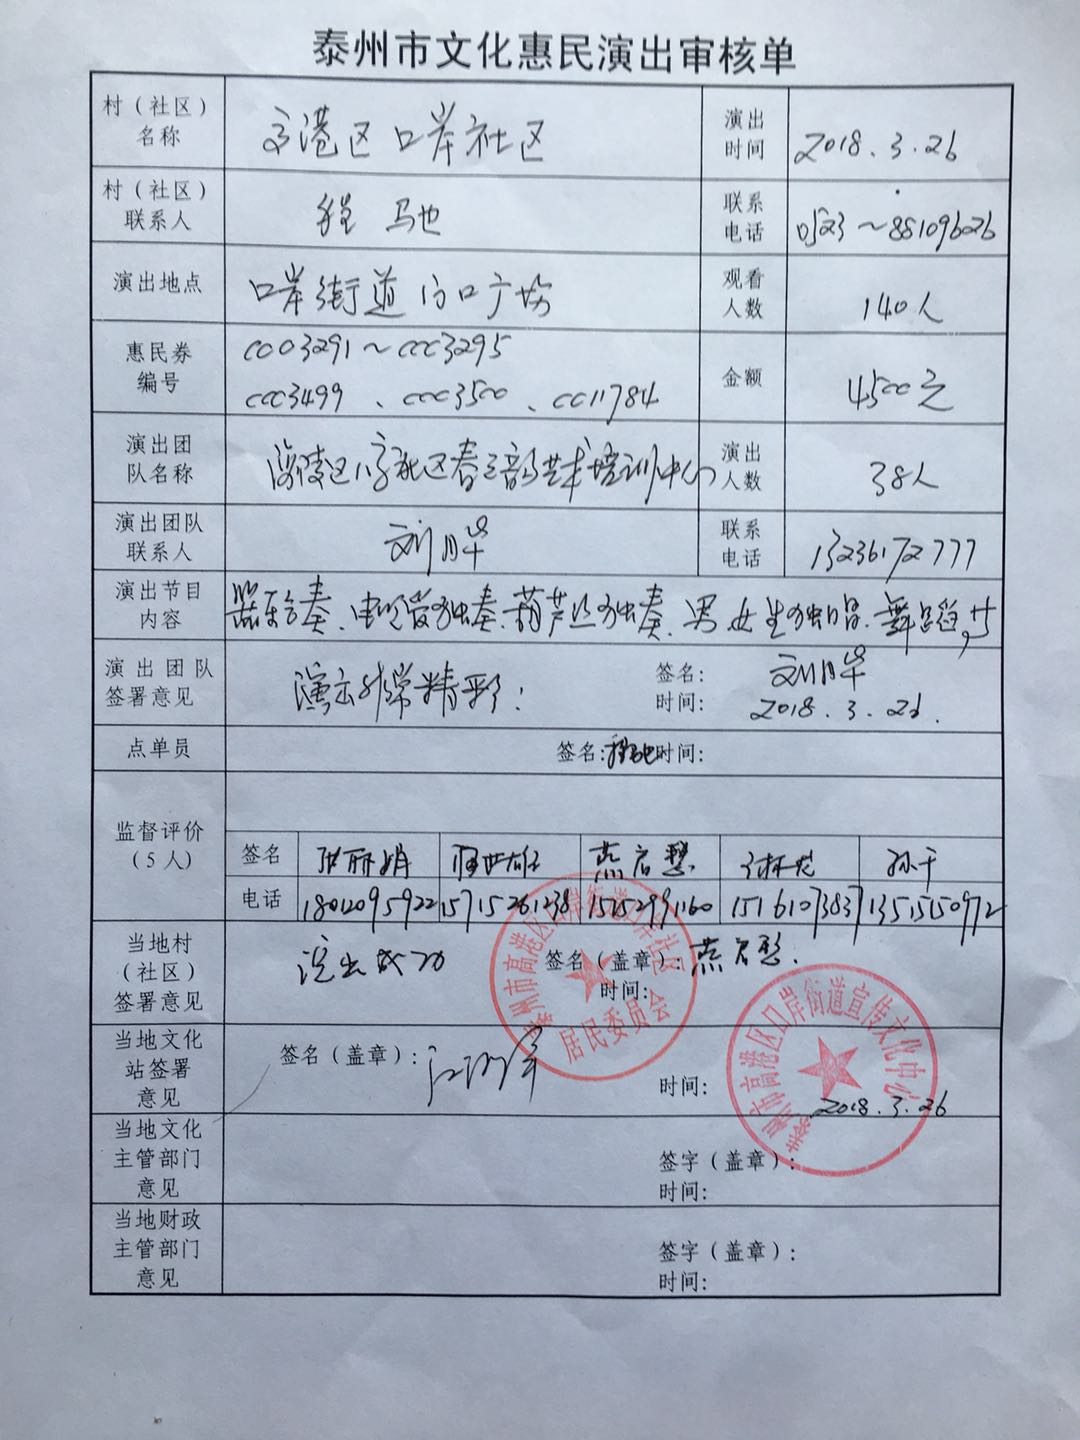 泰州市文化惠民演出审核单
村（社区）名称 高港区 口岸社区 演出时间 2018.3.26
村（社区）联系人 程 马也 联系电话 0523～88109626
演出地点 口岸街道 门口广场 观看人数 140人
惠民券编号 0003291～0003295
0003499、0003500、0011784 金额 4500元
演出团队名称 海陵区 社区春之韵艺术培训中心 演出人数 38人
演出团队联系人 刘月华 联系电话 13236172777
演出节目内容 器乐合奏、电吹管独奏、葫芦丝独奏、男女生独唱、舞蹈，
演出团队签署意见 演出非常精彩！ 签名：刘月华
时间：2018.3.26.
点单员 签名：程马也 时间：
监督评价（5人）
签名 张丽娟 燕启慧 孙干
电话 18012095922 15715261238 15252991160 15161073837 13515150972
当地村（社区）签署意见 演出成功 签名（盖章）：燕启慧.
时间：
泰州市高港区口岸街道口岸社区居民委员会
当地文化站签署意见 签名（盖章）：
时间：2018.3.26
泰州市高港区口岸街道宣传文化中心
当地文化主管部门意见 签字（盖章）：
时间：
当地财政主管部门意见 签字（盖章）：
时间：